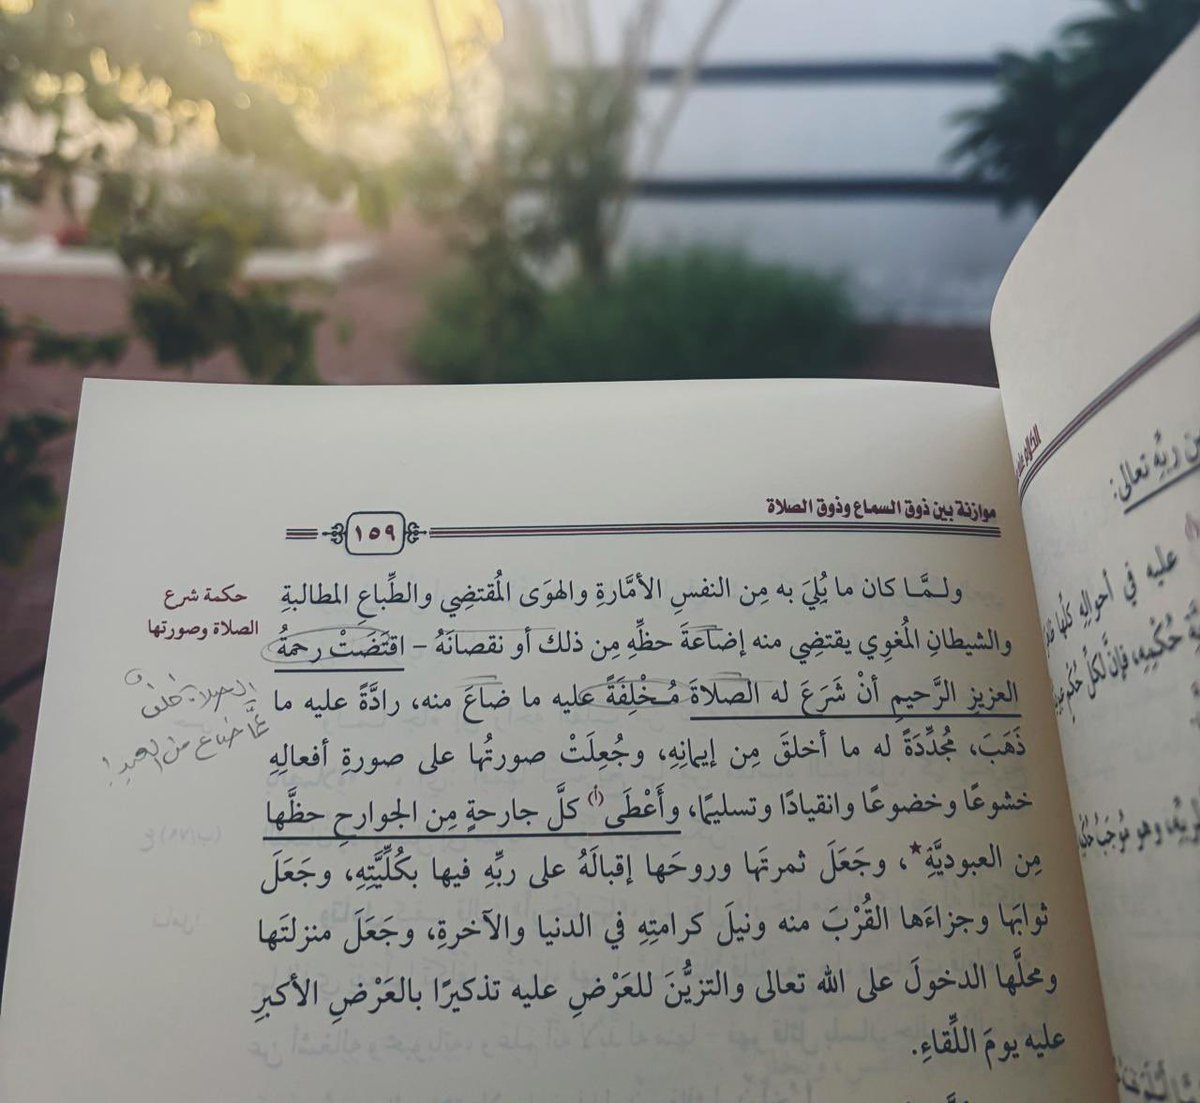 موازنة بين ذوق السماع وذوق الصلاة
١٥٩
ولـمَّـا كان ما بُلِيَ به مِن النفسِ الأمَّارةِ والهوَى المُقتضِي والطِّباعِ المطالبةِ
والشيطانِ المُغوِي يقتضِي منه إضاعَةَ حظِّهِ مِن ذلك أو نقصانَهُ – اقتَضَتْ رحمةُ
العزيزِ الرَّحيمِ أنْ شَرَعَ له الصلاةَ مُـخْلِفَةً عليه ما ضاعَ منه، رادَّةً عليه ما
ذَهَبَ، مُجدِّدَةً له ما أخلقَ مِن إيمانِهِ، وجُعِلَتْ صورتُها على صورةِ أفعالِهِ
خشوعًا وخضوعًا وانقيادًا وتسليمًا، وأَعْطَى(أ) كلَّ جارحةٍ مِن الجوارحِ حظَّها
مِن العبوديَّةِ★، وجَعَلَ ثمرتَها وروحَها إقبالَهُ على ربِّهِ فيها بكُلِّيَّتِهِ، وجَعَلَ
ثوابَها وجزاءَها القُرْبَ منه ونيلَ كرامتِهِ في الدنيا والآخرةِ، وجَعَلَ منزلتَها
ومحلَّها الدخولَ على الله تعالى والتزيُّنَ للعَرْضِ عليه تذكيرًا بالعَرْضِ الأكبرِ
عليه يومَ اللِّقاءِ.
حكمة شرع
الصلاة وصورتها
الصلاة خلفٌ
عمَّا ضاع من العبد!
ربِّهِ تعالى:
عليه في أحوالِهِ كلِّها
حُكْمِهِ، فإنَّ لكلِّ حُكْمٍ
وهو مُوجَبُ